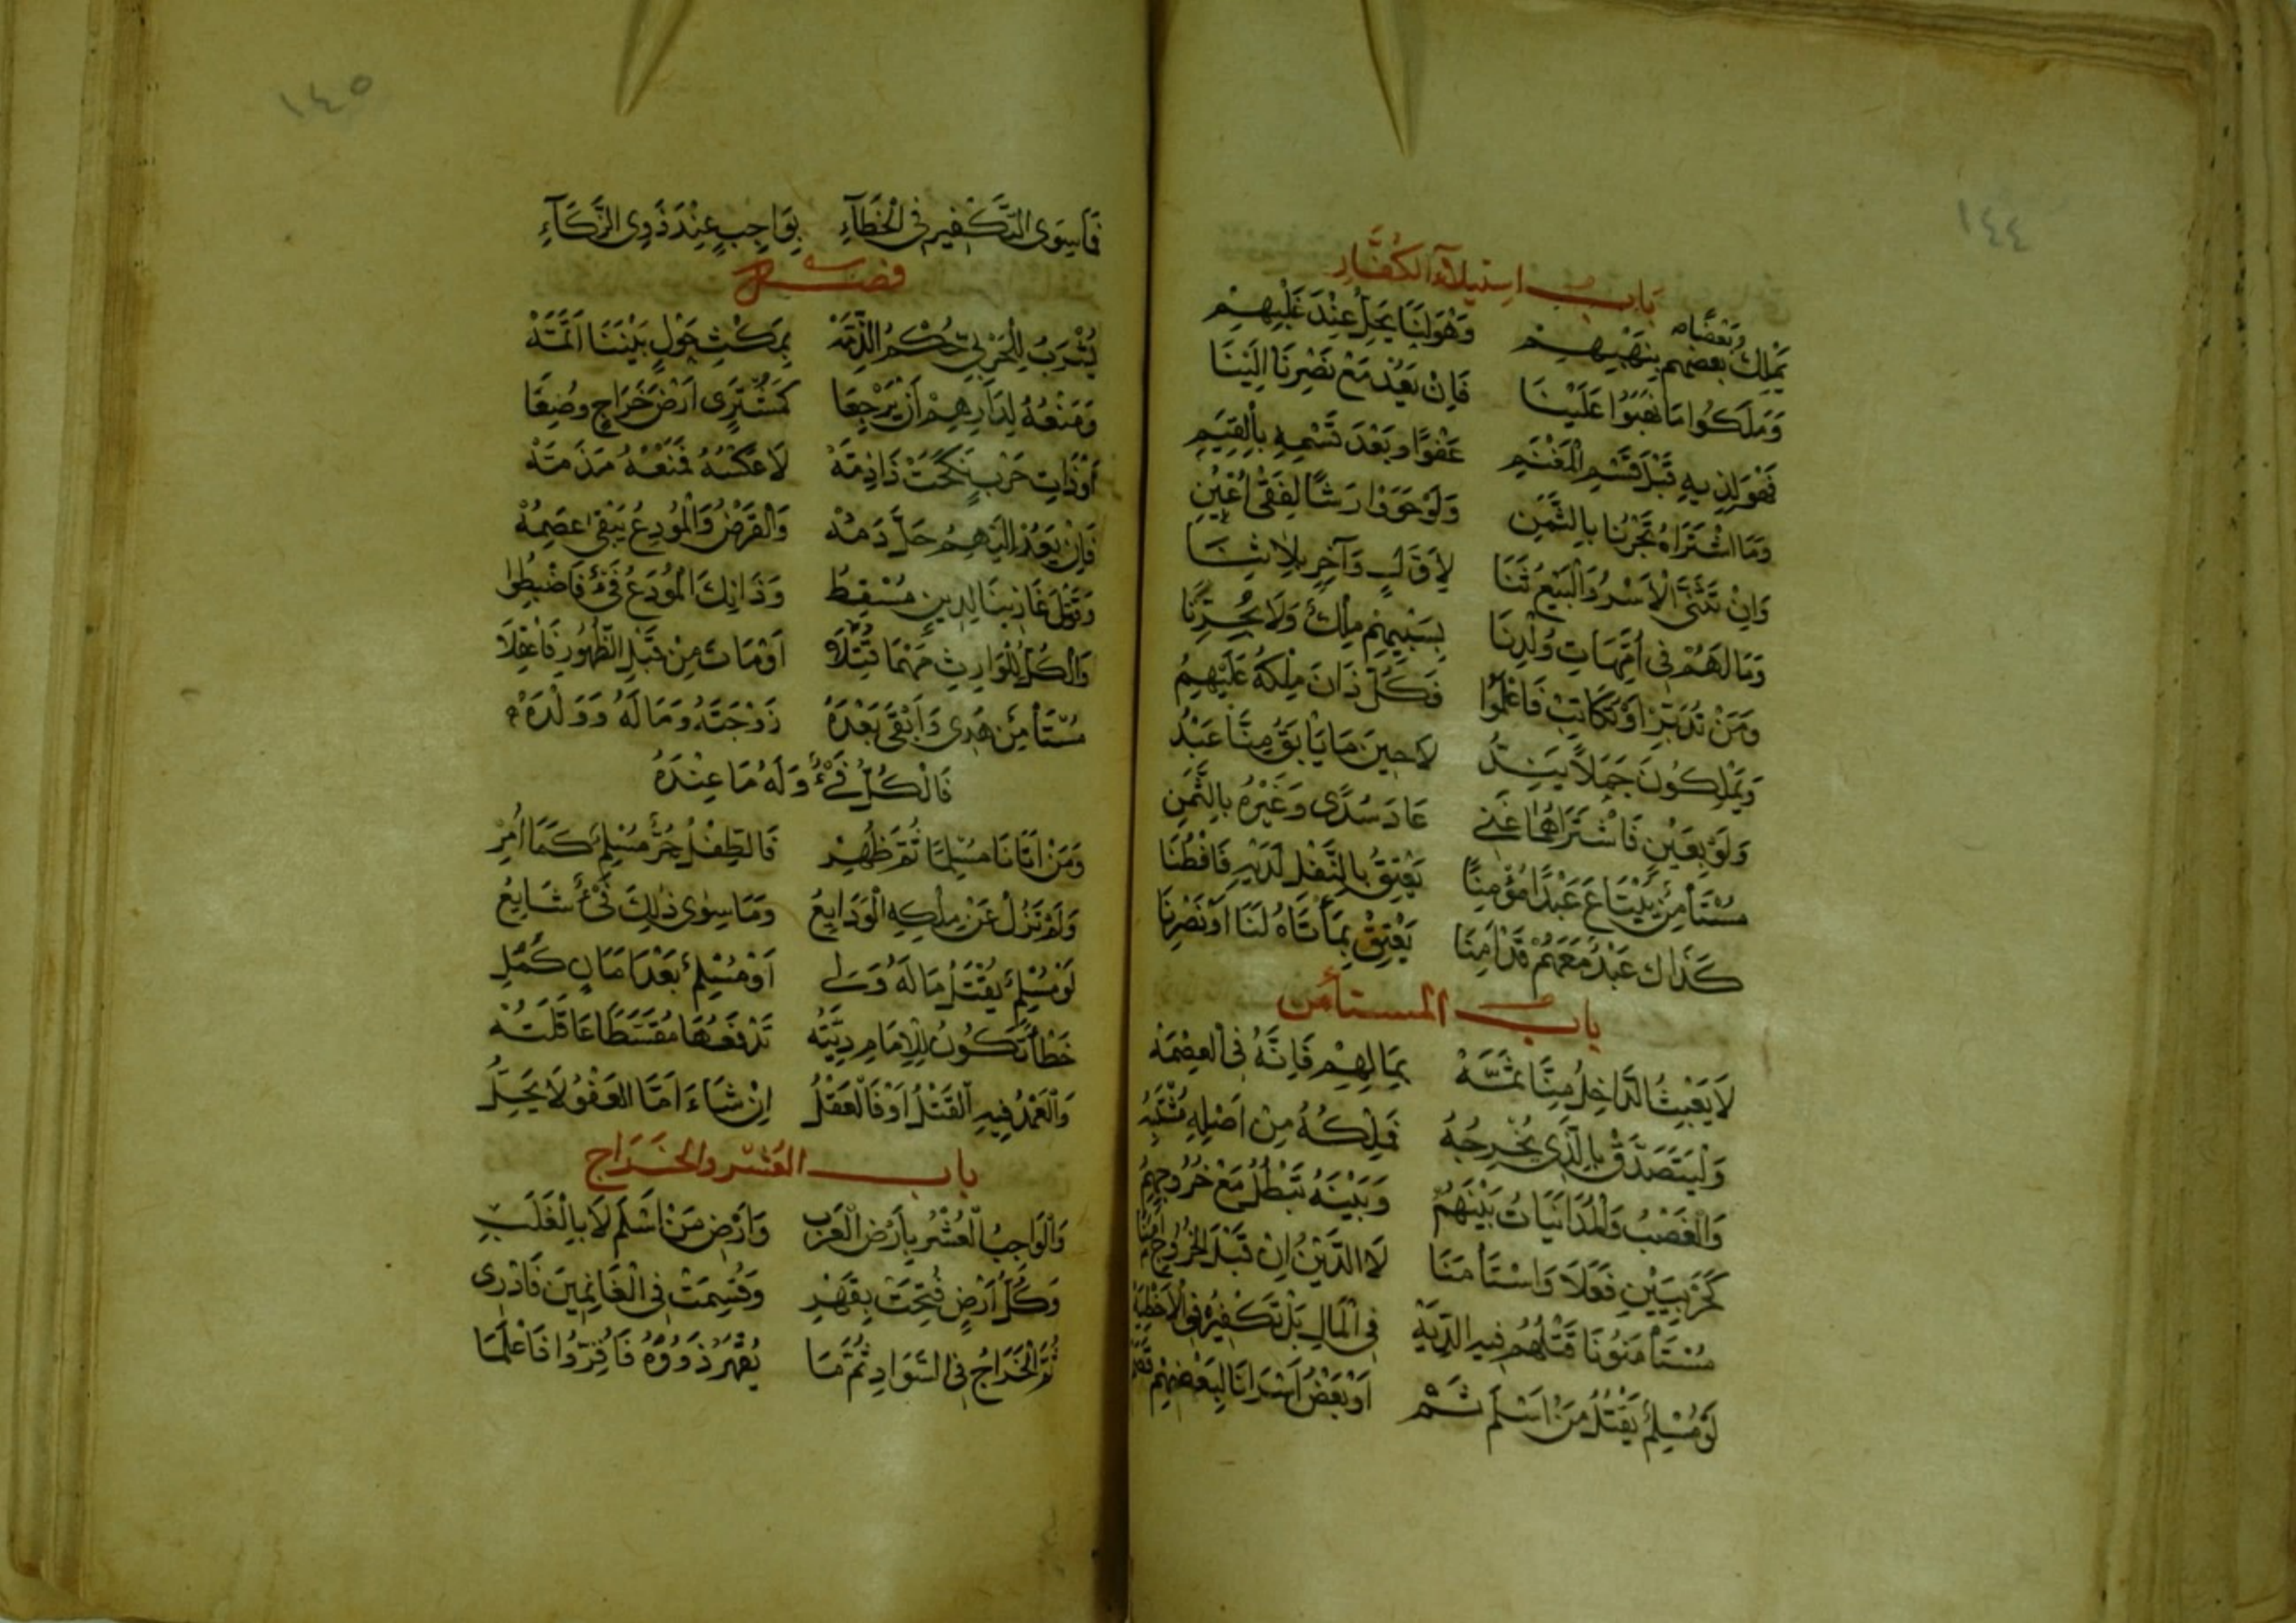 ١٤٤
باب استيلاء الكفار
وبعضا
يملك بعضهم بنهبهم وهو لنا يحل عند غلبهم
وملكوا ما نهبوا علينا فإن يعد مع نصرنا الينا
فهو لذيه قبل قسم المغنم عفوا وبعد قسمه بالقيم
وما اشتراه تجرنا بالثمن ولو حووا ارشا لفقئ اعين
وان تثنى الاسر والبيع ثنا لاول وآخر بلا ثنا
وما لهم في امهات ولدنا بسبيهم ملك ولا محررنا
ومن تدبر او تكاتب فاعلموا فكل ذان ملكه عليهم
ويملكون جملا يند لا حين ما يابق منا عبد
ولو بعين فاشتراهما غني عاد سدى وغيره بالثمن
مستأمن يبتاع عبدا مؤمنا يعتق بالنقل لديهم فافطنا
كذاك عبد معهم قد آمنا يعتق بما تاه لنا او نصرنا
باب المستأمن
لا يعبث الداخل منا ثمه بمالهم فإنه في العصمه
وليتصدق بالذي يخرجه فملكه من اصله
والغصب والمداينات بينهم وبينه تبطل مع خروجهم
كحربيين فعلا واستأمنا لا الدين ان قبل الخروج آمنا
مستأمنونا قتلهم فيه الديه في المال بل تكفيره في الاخطيه
لو مسلم يقتل من اسلم ثم او بعض اسرانا لبعضهم
١٤٥
فما سوى التكفير في الخطآء بواجب عند ذوي الزكآء
فصل
يضرب للحربي حكم الذمه بمكث حول بيننا اتمه
ومنعه لدارهم ان يرجعا كمشتري ارض خراج وضعا
او ذات حرب نكحت ذا ذمه لا عكسه فمنعه مذمته
فإن يعد اليهم حل دمه والقرض والمودع يبقى عصمه
وقتل غازينا لدين مسقط وذا ذلك المودع فئ فاضبطوا
والكل للوارث مهما قتلا او مات من قبل الظهور فاعقلا
مستأمن هدي وابقى بعده زوجته وماله وولده
فالكل فئ وله ما عنده
ومن اتانا مسلما ثم ظهر فالطفل حر مسلم كما امر
ولم تزل عن ملكه الودايع وما سوى ذلك فئ شايع
لو مسلم يقتل ما له ولى او مسلم بعد امان كمل
خطأ تكون للامام ديته تدفعها مقسطا عاقلته
والعمد فيه القتل او فالعقل ان شاء اما العفو لا يحل
باب العشر والخراج
والواجب العشر بارض العرب وارض من اسلم لا بالغلب
وكل ارض فتحت بقهر وقسمت في الغانمين فادري
ثم الخراج في السواد ثم ما يقهر ذووه فاقروا فاعلما